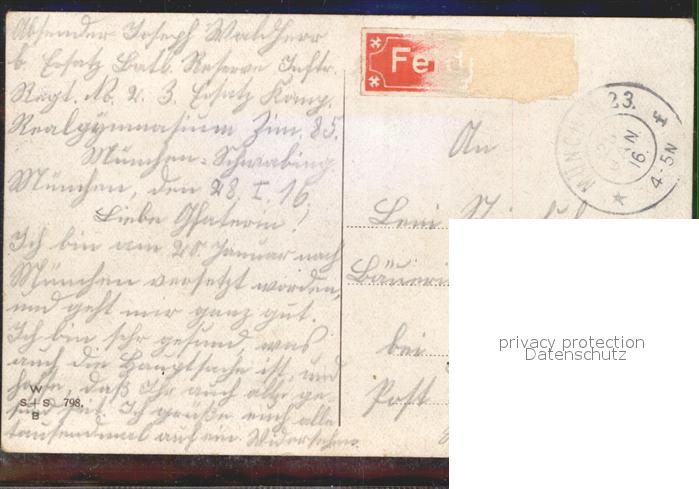 Absender Joseph Waldherr
b. Ersatz Batl. Reserve Inftr.
Regt. No. 2. 3. Ersatz Komp.
Realgymnasium Zim. 85.
München-Schwabing
München, den 28. I. 16.
Liebe
Ich bin am 20. Januar nach
München versetzt worden,
und geht mir ganz gut.
Ich bin sehr gesund, was
auch die Hauptsache ist, und
hoffe, daß Ihr auch alle ge-
sund seit. Ich grüße euch alle
tausendmal auf ein Widersehen.
W
S+S 798.
B
Fe
MÜNC
23.
16.
4-5N
An
Leni
bei
Post
privacy protection
Datenschutz